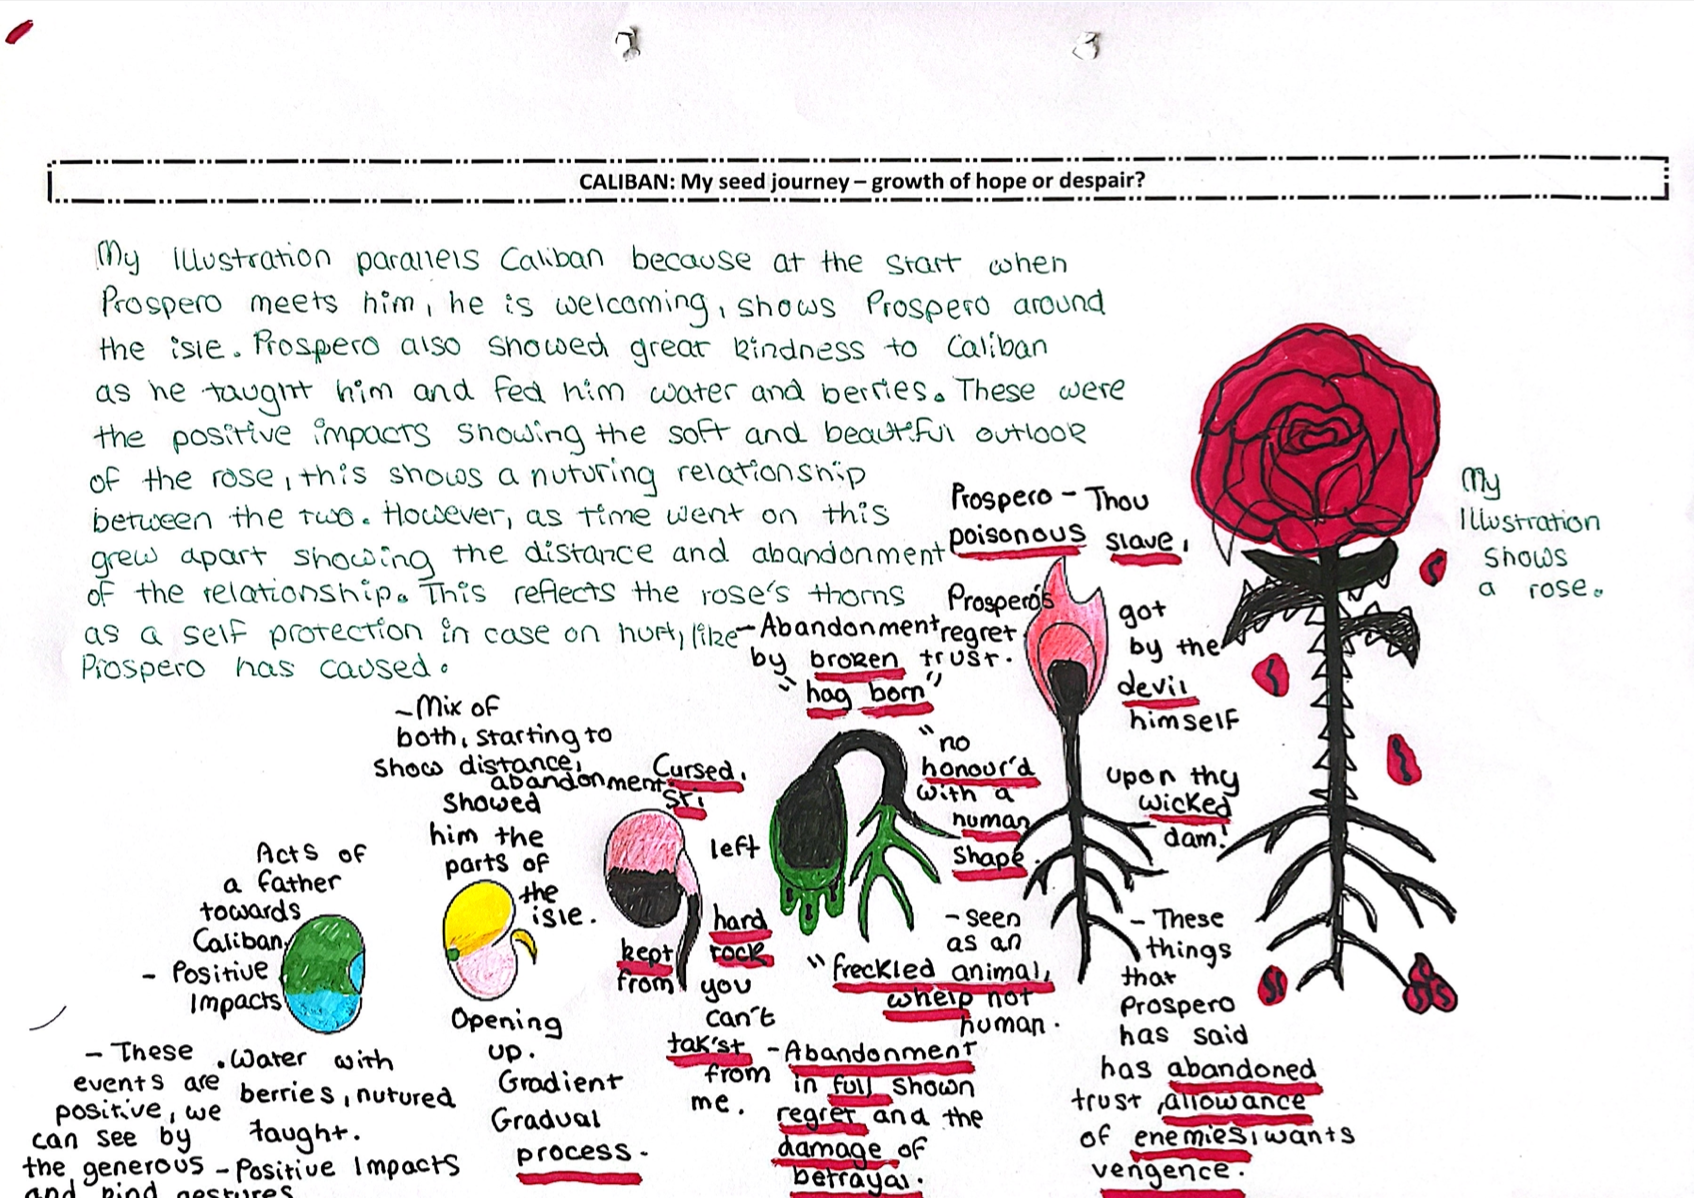 CALIBAN: My seed journey – growth of hope or despair?
My Illustration parallels Caliban because at the start when
Prospero meets him, he is welcoming, shows Prospero around
the isle. Prospero also showed great kindness to Caliban
as he taught him and fed him water and berries. These were
the positive impacts showing the soft and beautiful outlook
of the rose, this shows a nuturing relationship
between the two. However, as time went on this
grew apart showing the distance and abandonment
of the relationship. This reflects the rose's thorns
as a self protection in case on hurt, like
Prospero has caused.
My
Illustration
shows
a rose.
Acts of
a father
towards
Caliban.
- Positive
Impacts
- These
events are
positive, we
can see by
the generous
and kind gestures
. Water with
berries, nutured
taught.
- Positive Impacts
~Mix of
both, starting to
show distance,
abandonment
Showed
him the
parts of
the
isle.
Opening
up.
Gradient
Gradual
process.
Cursed,
left
hard
rock
kept
from
you
can't
tak'st
from
me.
- Abandonment
by broken trust.
"hag born"
"no
honour'd
with a
human
shape.
- seen
as an
"freckled animal,
whelp not
human.
- Abandonment
in full shown
regret and the
damage of
betrayal.
Prospero - Thou
poisonous slave,
Prospero's
regret
got
by the
devil
himself
upon thy
wicked
dam!
- These
things
that
Prospero
has said
has abandoned
trust, allowance
of enemies, wants
vengence.